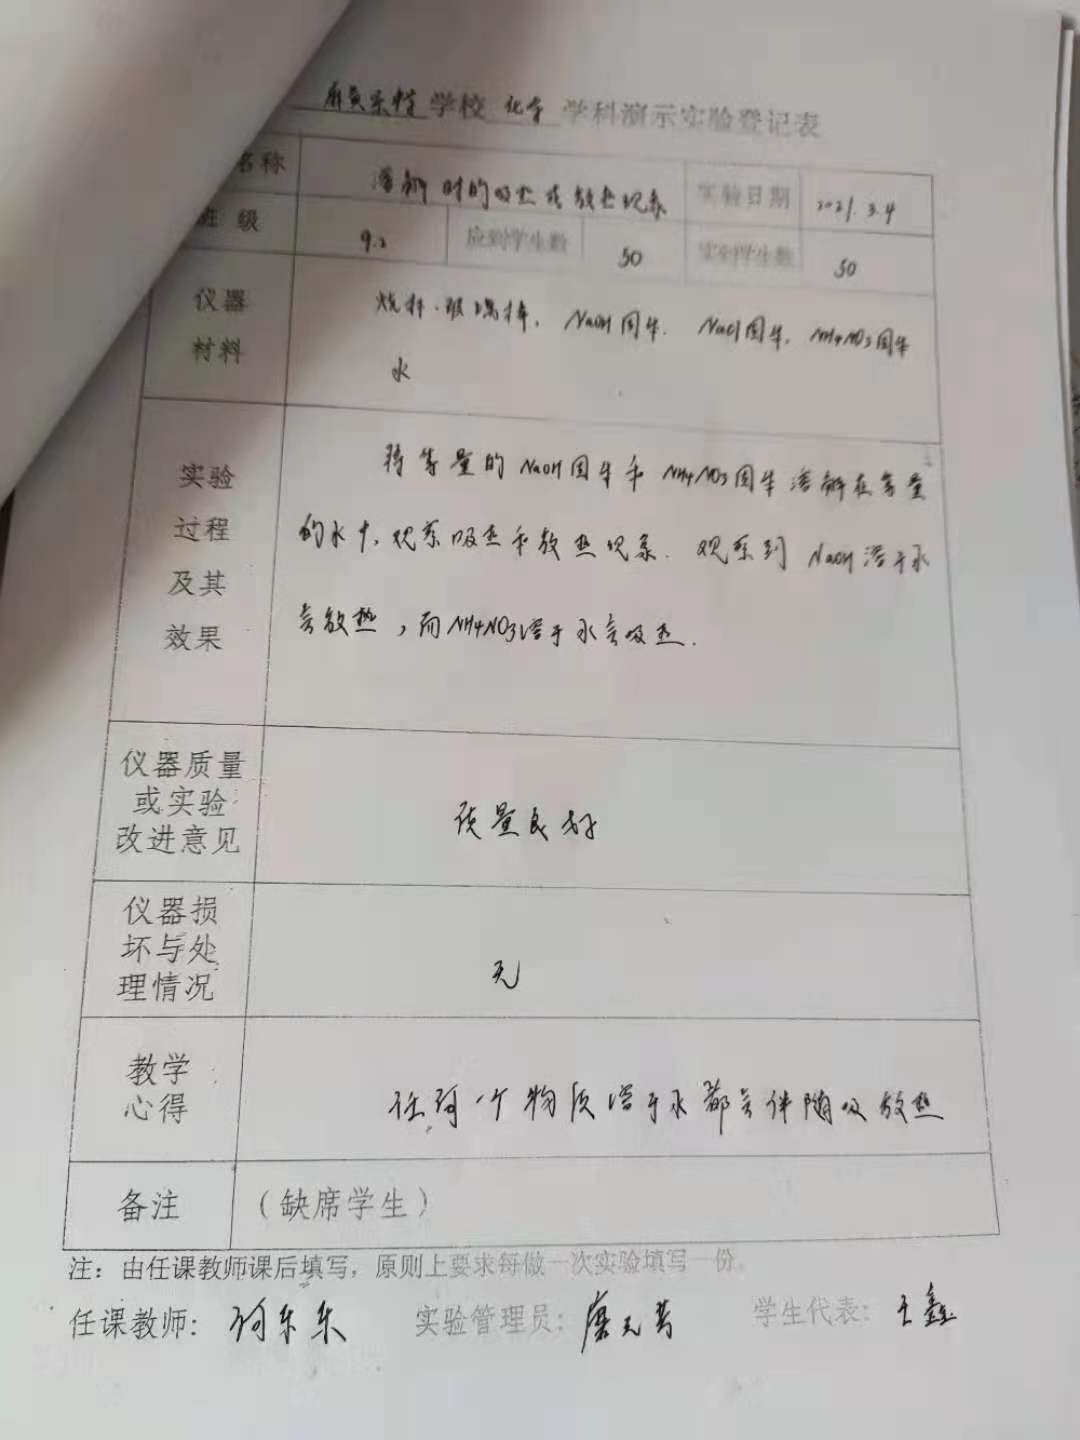 学校 化学 学科演示实验登记表
名称 溶解时的吸热或放热现象 实验日期 2021.3.4
班级 9.2 应到学生数 50 实到学生数 50
仪器 烧杯、玻璃棒, NaOH固体. NaCl固体, NH4NO3固体
材料 水
实验 将等量的NaOH固体和NH4NO3固体溶解在等量
过程 的水中,观察吸热和放热现象. 观察到NaOH溶于水
及其 会放热,而NH4NO3溶于水会吸热.
效果
仪器质量
或实验 质量良好
改进意见
仪器损
坏与处
理情况 无
教学
心得 任何一个物质溶于水都会伴随吸放热
备注 (缺席学生)
注:由任课教师课后填写,原则上要求每做一次实验填写一份。
任课教师: 何东东 实验管理员: 学生代表: 王鑫